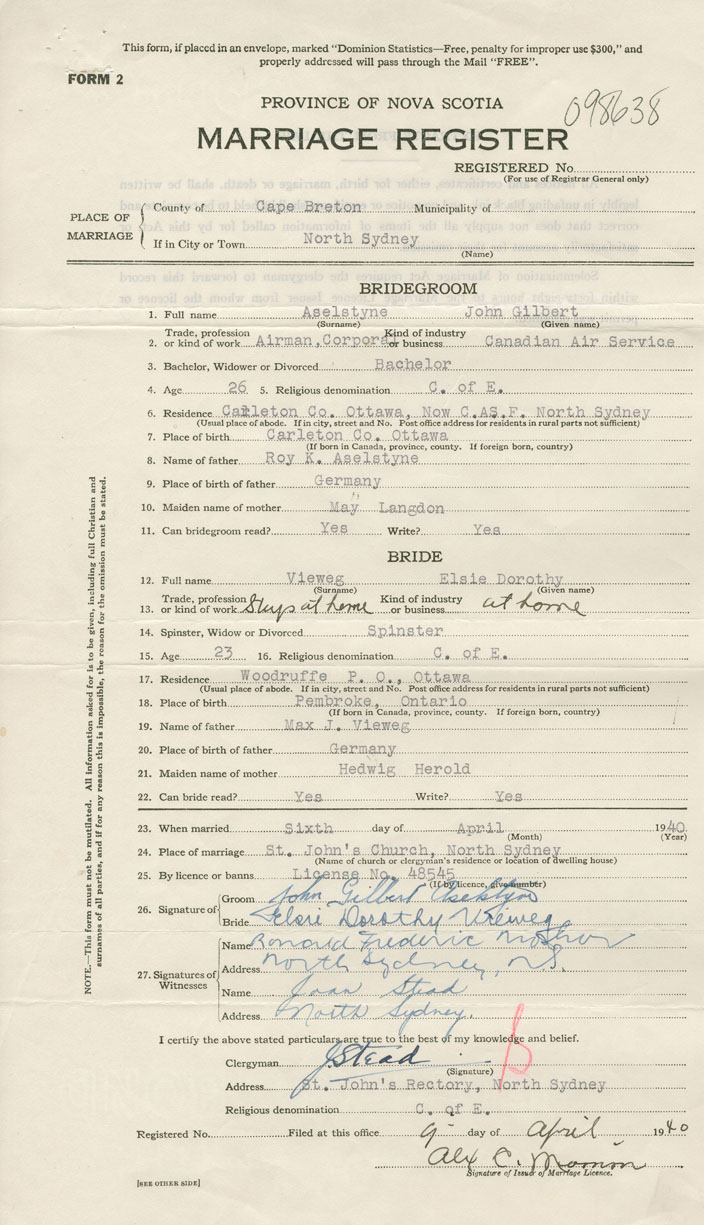 This form, if placed in an envelope, marked "Dominion Statistics—Free, penalty for improper use $300," and
properly addressed will pass through the Mail "FREE".
FORM 2
PROVINCE OF NOVA SCOTIA
098638
MARRIAGE REGISTER
REGISTERED No.
(For use of Registrar General only)
PLACE OF MARRIAGE
County of Cape Breton Municipality of
If in City or Town North Sydney
(Name)
BRIDEGROOM
1. Full name Aselstyne John Gilbert
(Surname) (Given name)
2. Trade, profession or kind of work Airman, Corporal Kind of industry or business Canadian Air Service
3. Bachelor, Widower or Divorced Bachelor
4. Age 26 5. Religious denomination C. of E.
6. Residence Carleton Co. Ottawa, Now C.AS.F. North Sydney
(Usual place of abode. If in city, street and No. Post office address for residents in rural parts not sufficient)
7. Place of birth Carleton Co. Ottawa
(If born in Canada, province, county. If foreign born, country)
8. Name of father Roy K. Aselstyne
9. Place of birth of father Germany
10. Maiden name of mother May Langdon
11. Can bridegroom read? Yes Write? Yes
BRIDE
12. Full name Vieweg Elsie Dorothy
(Surname) (Given name)
13. Trade, profession or kind of work Stays at home Kind of industry or business at home
14. Spinster, Widow or Divorced Spinster
15. Age 23 16. Religious denomination C. of E.
17. Residence Woodruffe P. O., Ottawa
(Usual place of abode. If in city, street and No. Post office address for residents in rural parts not sufficient)
18. Place of birth Pembroke, Ontario
(If born in Canada, province, county. If foreign born, country)
19. Name of father Max J. Vieweg
20. Place of birth of father Germany
21. Maiden name of mother Hedwig Herold
22. Can bride read? Yes Write? Yes
23. When married Sixth day of April 1940
(Month) (Year)
24. Place of marriage St. John's Church, North Sydney
(Name of church or clergyman's residence or location of dwelling house)
25. By licence or banns License No. 48545
(If by licence, give number)
26. Signature of
Groom John Gilbert Aselstyne
Bride Elsie Dorothy Vieweg
27. Signatures of Witnesses
Name Ronald Frederic
Address North Sydney, N.S.
Name Joan Stead
Address North Sydney.
I certify the above stated particulars are true to the best of my knowledge and belief.
Clergyman J Stead
(Signature)
Address St. John's Rectory, North Sydney
Religious denomination C. of E.
Registered No. Filed at this office 9 day of April 1940
Alex C.
Signature of Issuer of Marriage Licence.
[SEE OTHER SIDE]
NOTE.—This form must not be mutilated. All information asked for is to be given, including full Christian and
surnames of all parties, and if for any reason this is impossible, the reason for the omission must be stated.